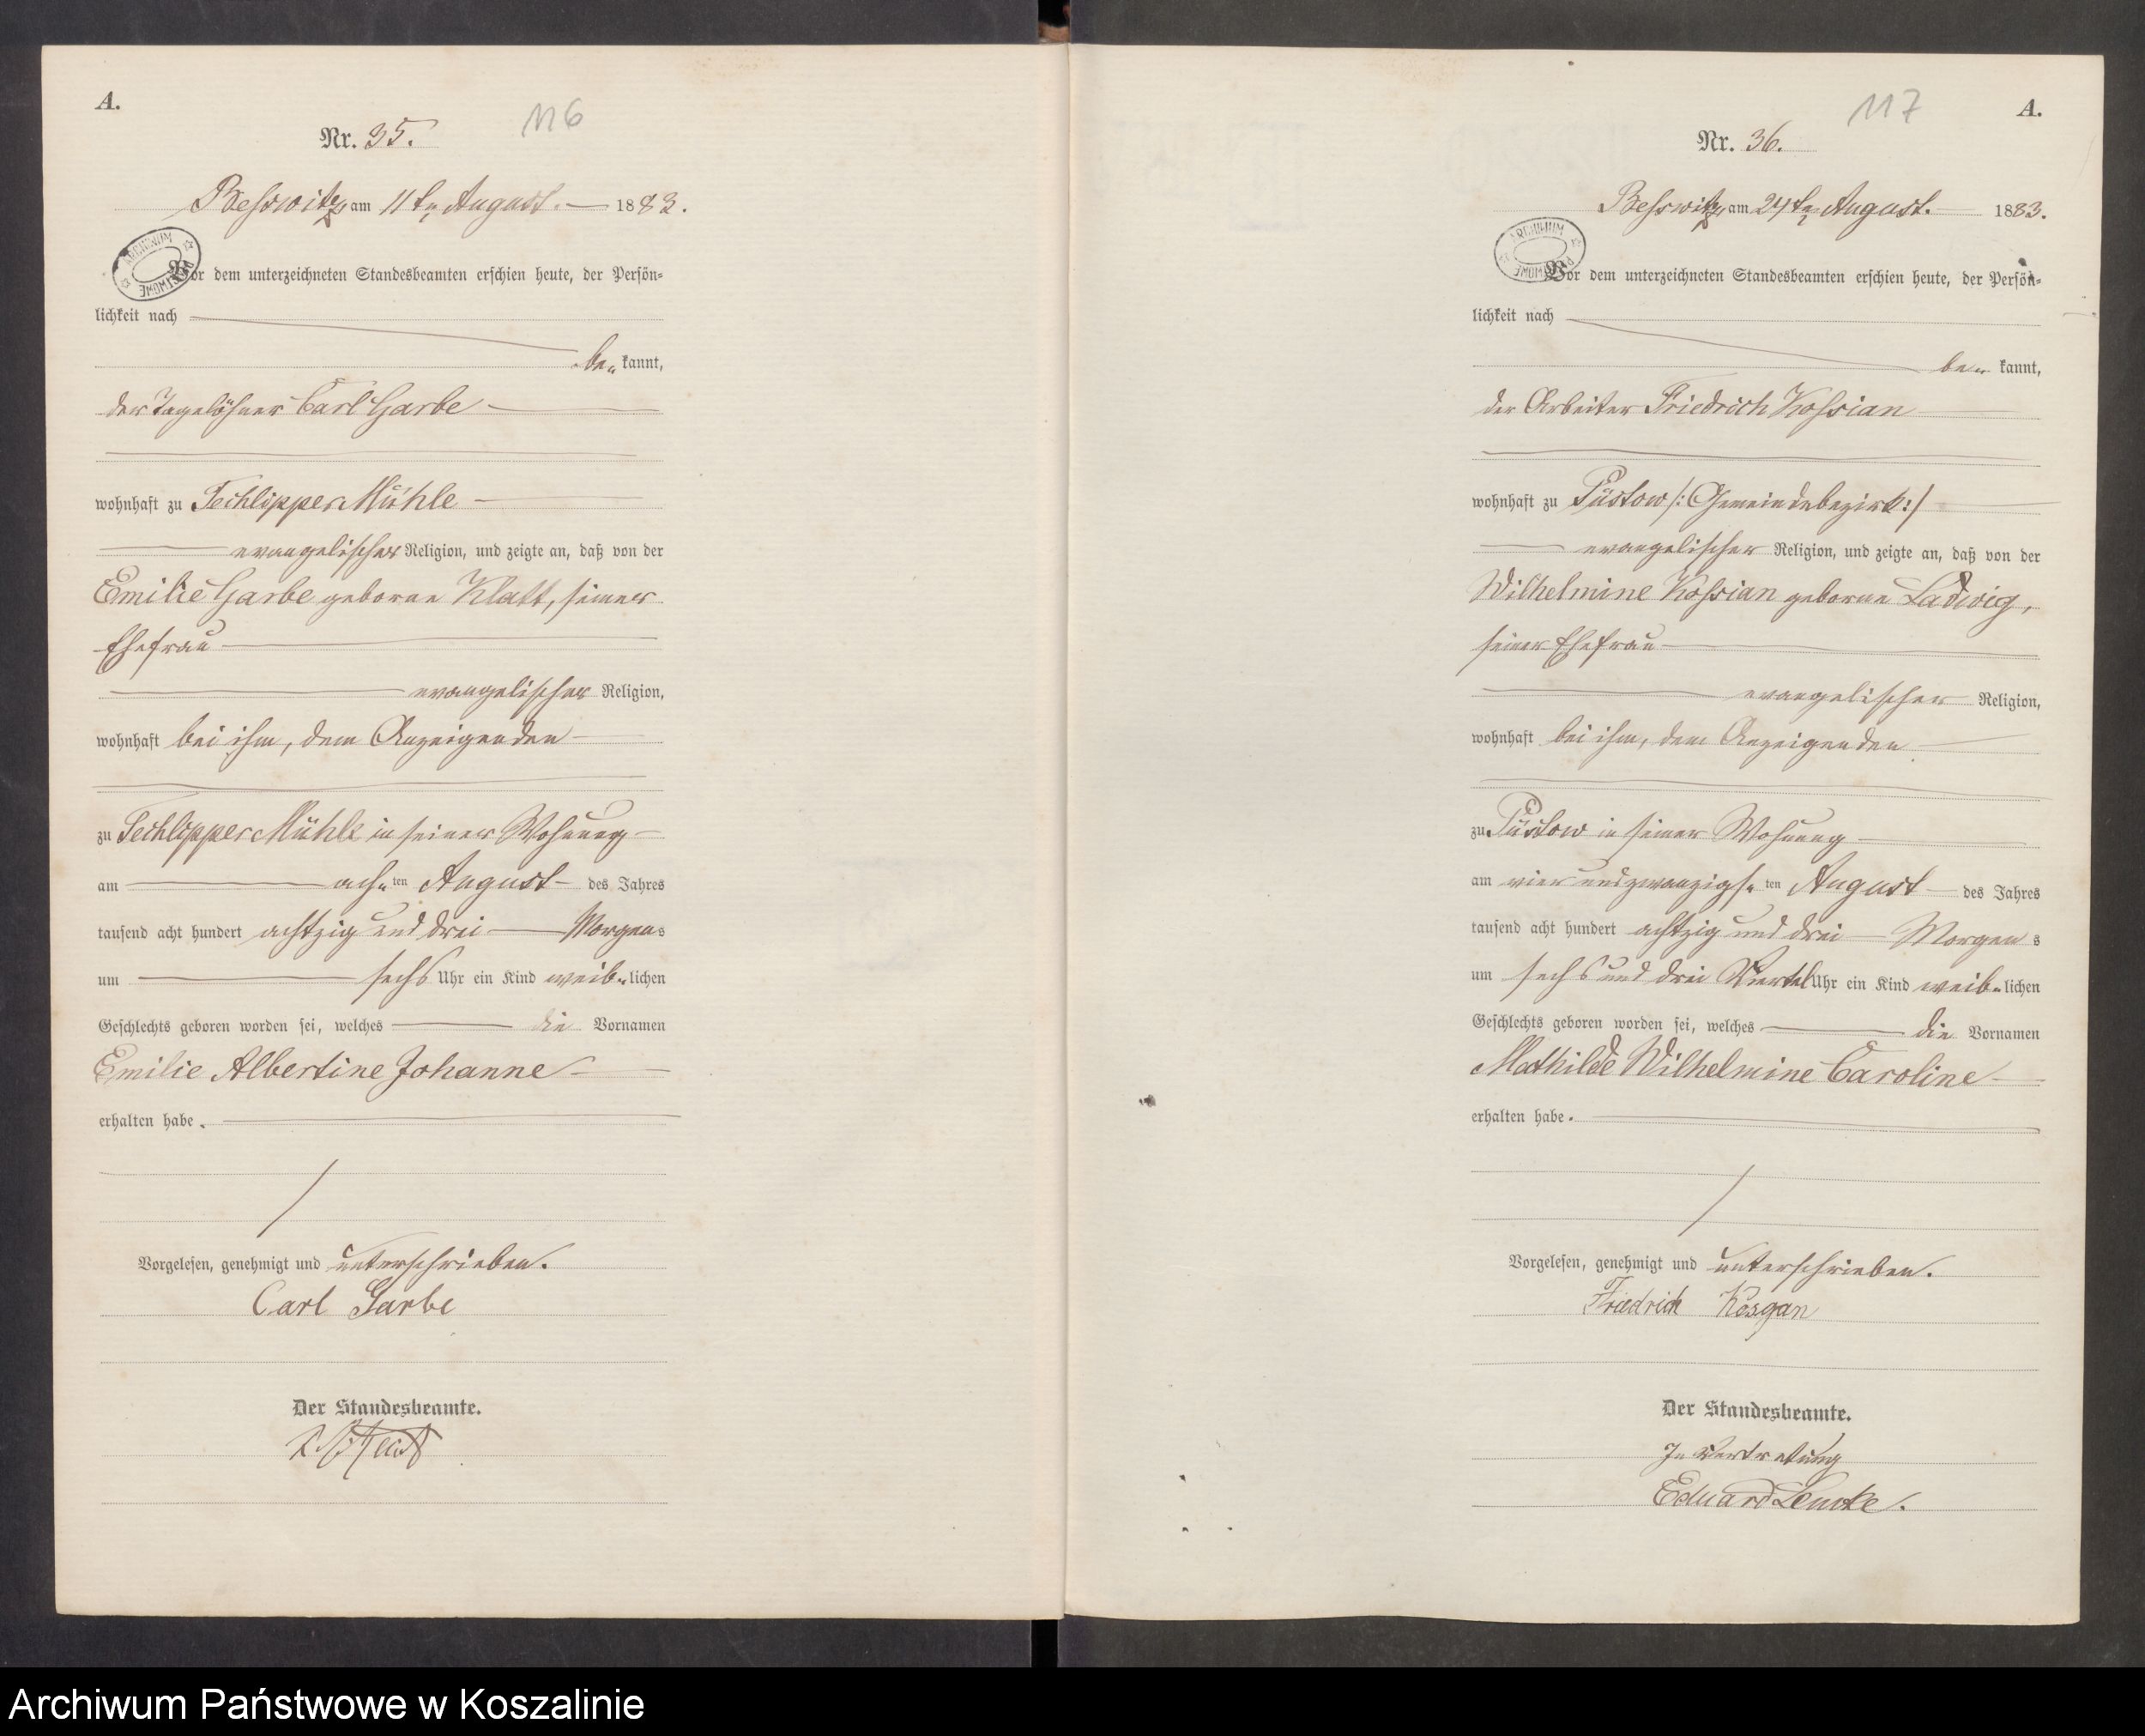 A.
116
Nr. 35.
Besswitz, am 11ten August. 1883.
ARCHIWUM
Vor dem unterzeichneten Standesbeamten erschien heute, der Persön=
lichkeit nach
be kannt,
der Tagelöhner Carl Garbe
wohnhaft zu Techlipper Mühle
evangelischer Religion, und zeigte an, daß von der
Emilie Garbe geborne Klatt, seiner
Ehefrau
evangelischer Religion,
wohnhaft bei ihm, dem Anzeigenden
zu Techlipper Mühle in seiner Wohnung
am achten August des Jahres
tausend acht hundert achtzig und drei Morgens
um sechs Uhr ein Kind weiblichen
Geschlechts geboren worden sei, welches die Vornamen
Emilie Albertine Johanne
erhalten habe.
Vorgelesen, genehmigt und unterschrieben.
Carl Garbe
Der Standesbeamte.
117
A.
Nr. 36.
Besswitz, am 24ten August. 1883.
ARCHIWUM
Vor dem unterzeichneten Standesbeamten erschien heute, der Persön=
lichkeit nach
be kannt,
der Arbeiter Friedrich Kossian
wohnhaft zu Püstow /: Gemeindebezirk :/
evangelischer Religion, und zeigte an, daß von der
Wilhelmine Kossian geborne Ladwig,
seiner Ehefrau
evangelischer Religion,
wohnhaft bei ihm, dem Anzeigenden
zu Püstow in seiner Wohnung
am vier und zwanzigsten August des Jahres
tausend acht hundert achtzig und drei Morgens
um sechs und drei Viertel Uhr ein Kind weiblichen
Geschlechts geboren worden sei, welches die Vornamen
Mathilde Wilhelmine Caroline
erhalten habe.
Vorgelesen, genehmigt und unterschrieben.
Friedrich Kosgan
Der Standesbeamte.
In Vertretung
Eduard Lemke.
Archiwum Państwowe w Koszalinie